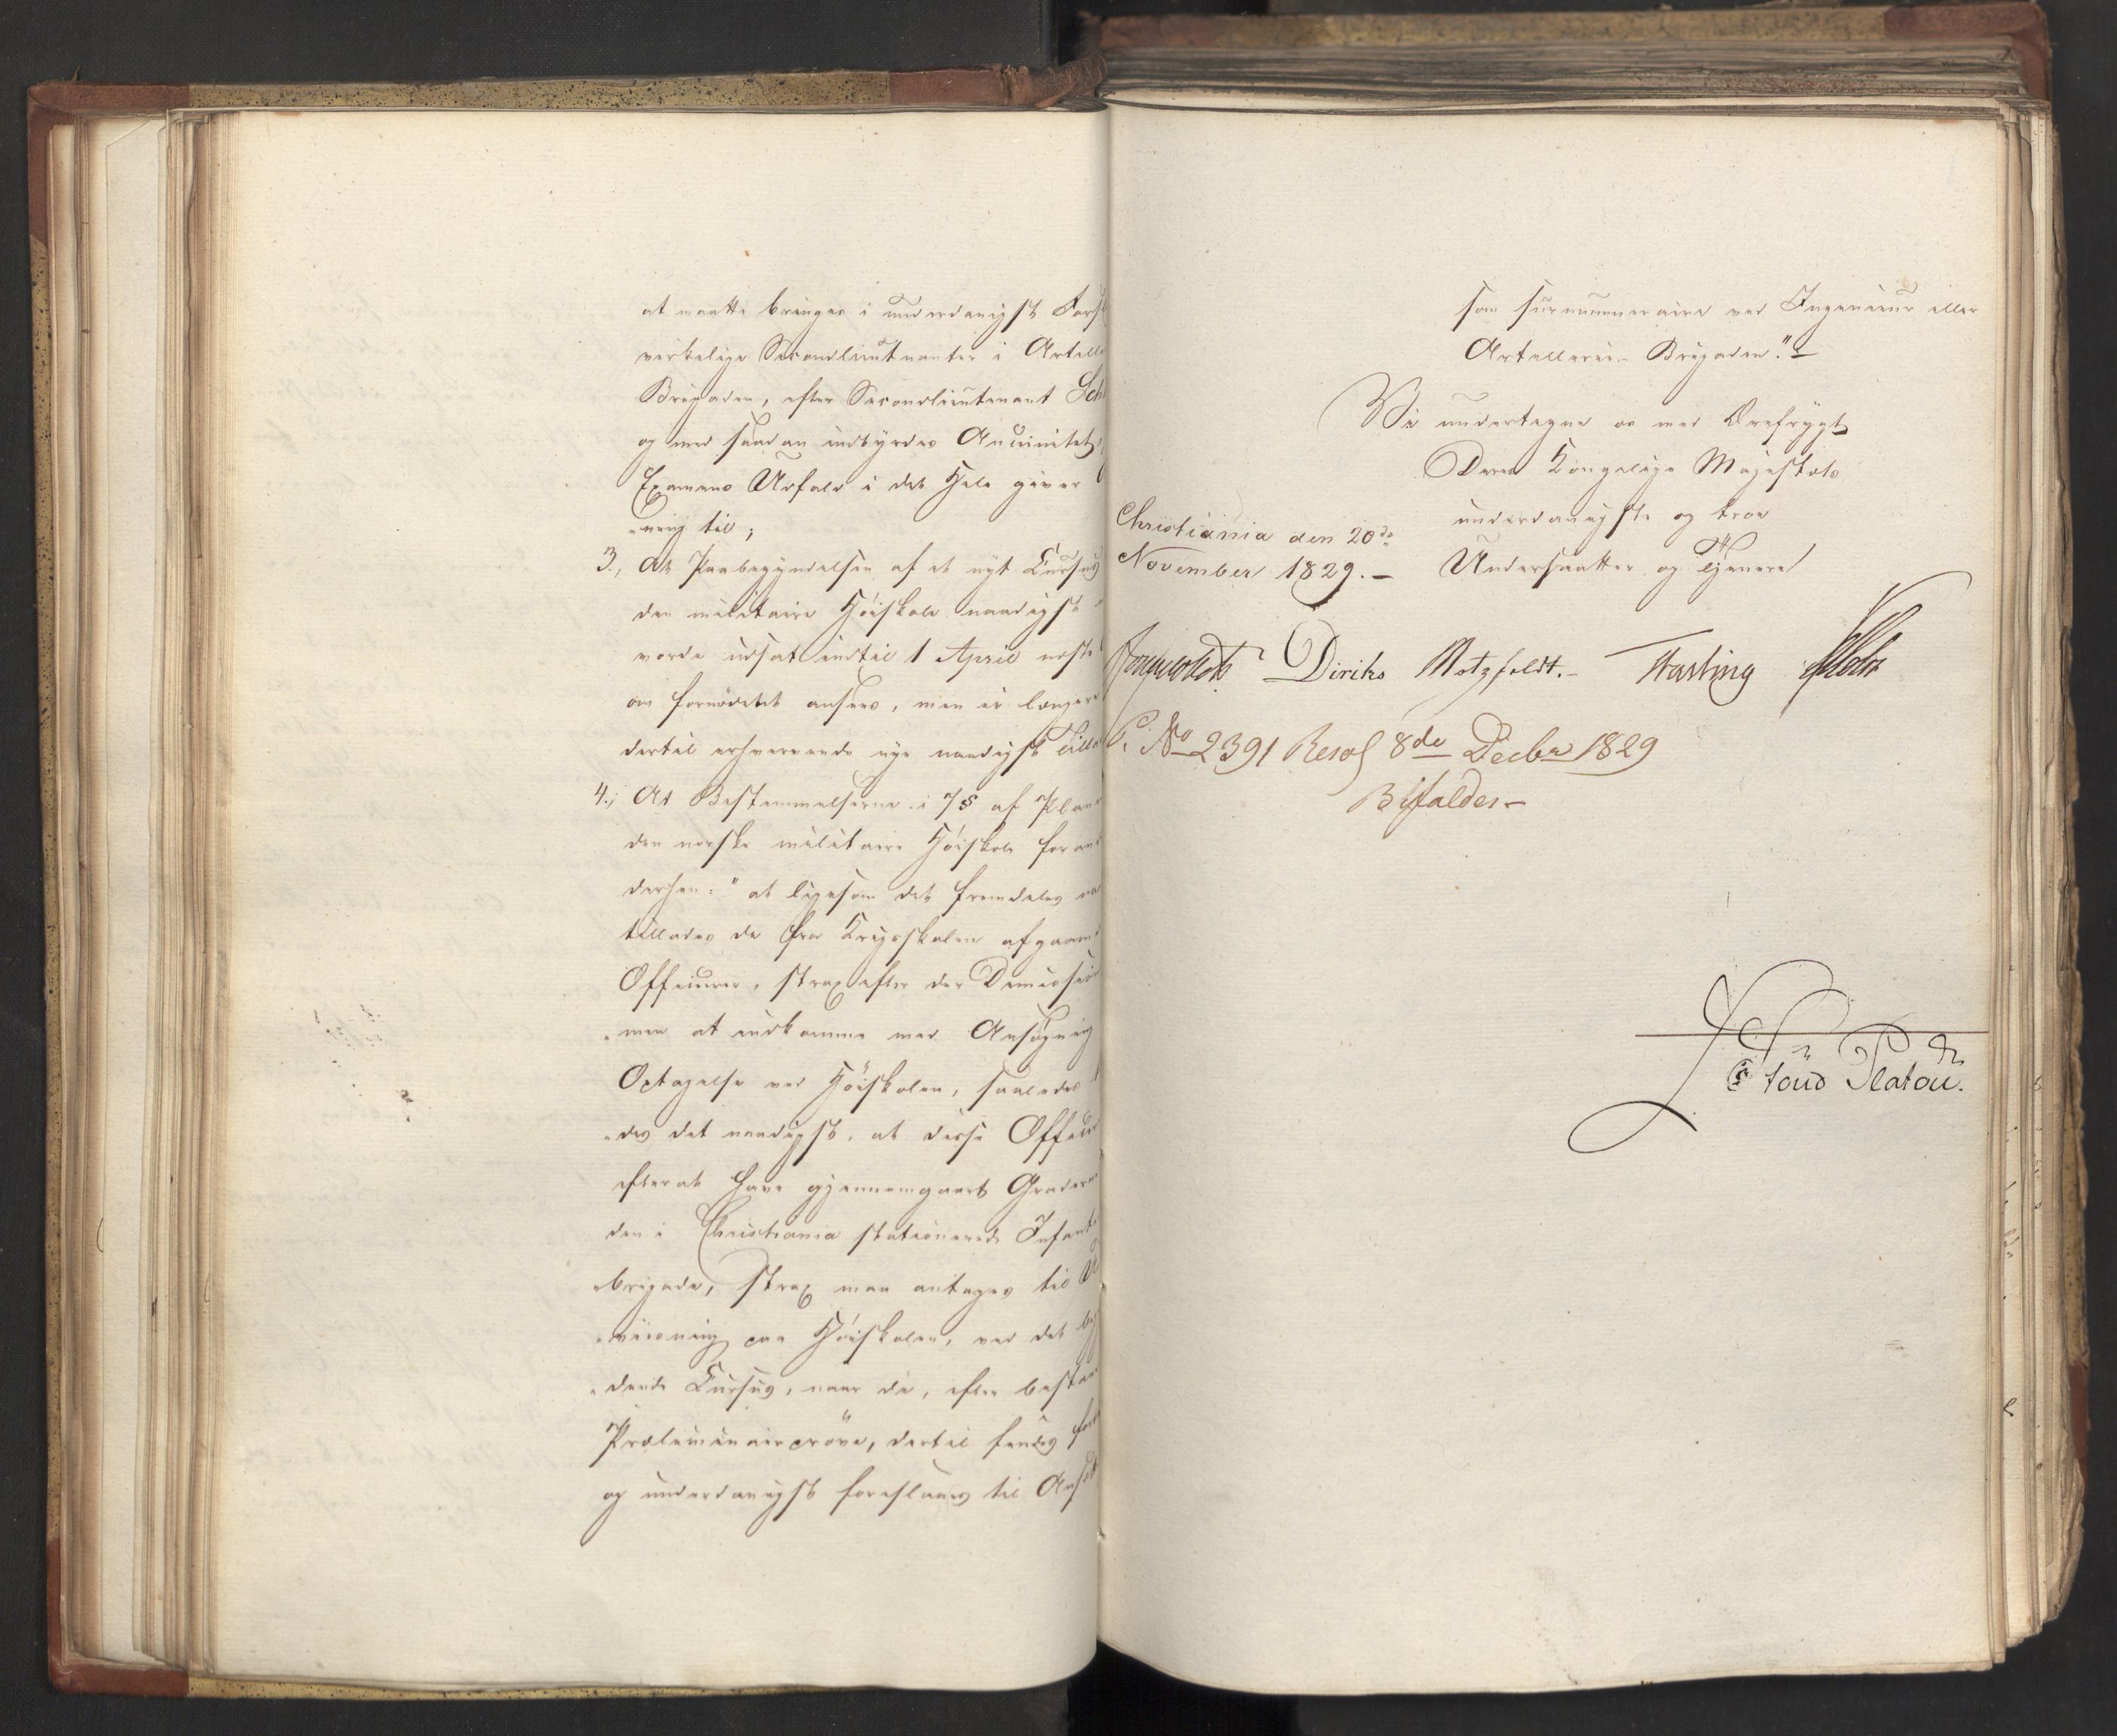 at maatte bringes i underdanigst Forsl
virkelige Secondlieutnanter i Artille
Brigaden, efter Secondlieutenant Sch
og med saadan indbyrdes Anciinitet,
Examens Udfald i det Hele giver
-ning til;
3., At Paabegyndelsen af et nyt Cursus
den militaire Høiskole naadigst
vorde udsat indtil 1 April næste
om fornødent ansees, men ei længere
dertil erhvervende nye naadigst Tilla
4., At Bestemmelserne i 7 § af Plan
den norske militaire Høiskole foran
derhen: "at ligesom det fremdeles
tillades de fra Krigsskolen afgaaen
Officierer, strax efter der Dimission
-men at indkomme med Ansøgning
Optagelse ved Høiskolen, saaledes
-des det naadigst, at disse Officie
efterat have gjennemgaaet Graderne
den i Christiania stationerede Infant
-brigade, strax maa antages til U
-viisning paa Høiskolen, ved det beg
-dende Cursus, naar de, efter bestaa
Præliminairprøve, dertil findes
og underdanigst foreslaaes til Ansæt
som surnummeraire ved Ingenieur eller
Artillerie-Brigaden." —
Vi undertegne os med Ærefrygt
Deres Kongelige Majestæts
underdanigste og troe
Undersaatter og Tjenere
Christiania den 20de
November 1829. —
Diriks Motzfeldt. — Fasting
P. No 2391 Resol 8de Decbr 1829
Bifaldes —
Stoud Platou.